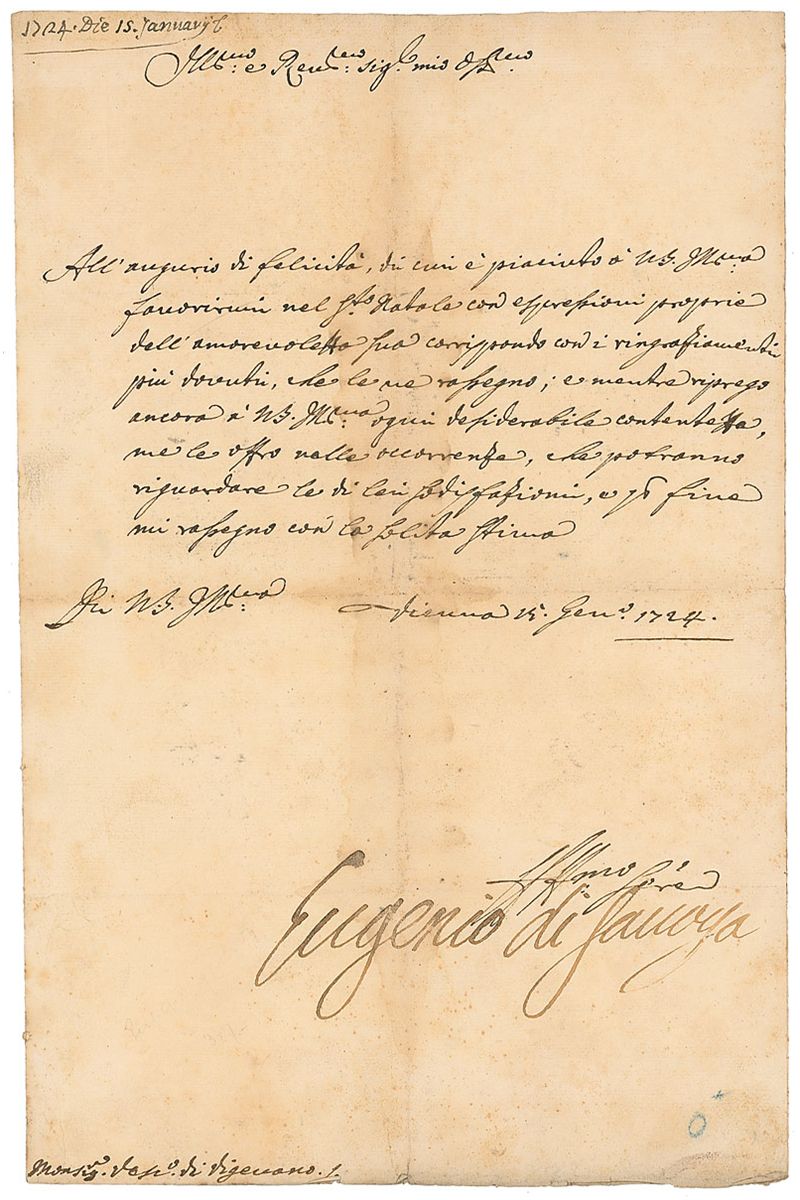 1724. Die 15. Januarij
Ill.mo e Rev.mo Sig.r mio Oss.mo
All'augurio di felicità, di cui è piaciuto à V.S. Ill.ma
favorirmi nel S.to Natale con espressioni proprie
dell'amorevolezza sua corrispondo con i ringraziamenti
più dovuti, che le ne rassegno; e mentre riprego
ancora à V.S. Ill.ma ogni desiderabile contentezza,
me le offro nelle occorrenze, che potranno
riguardare le di lei sodisfazioni, e p fine
mi rassegno con la solita stima
Di V.S. Ill.ma Vienna 15. Gen.o 1724.
Aff.mo Ser.e
Eugenio di Savoya
Monsig.r Vesc.o di Vigevano.